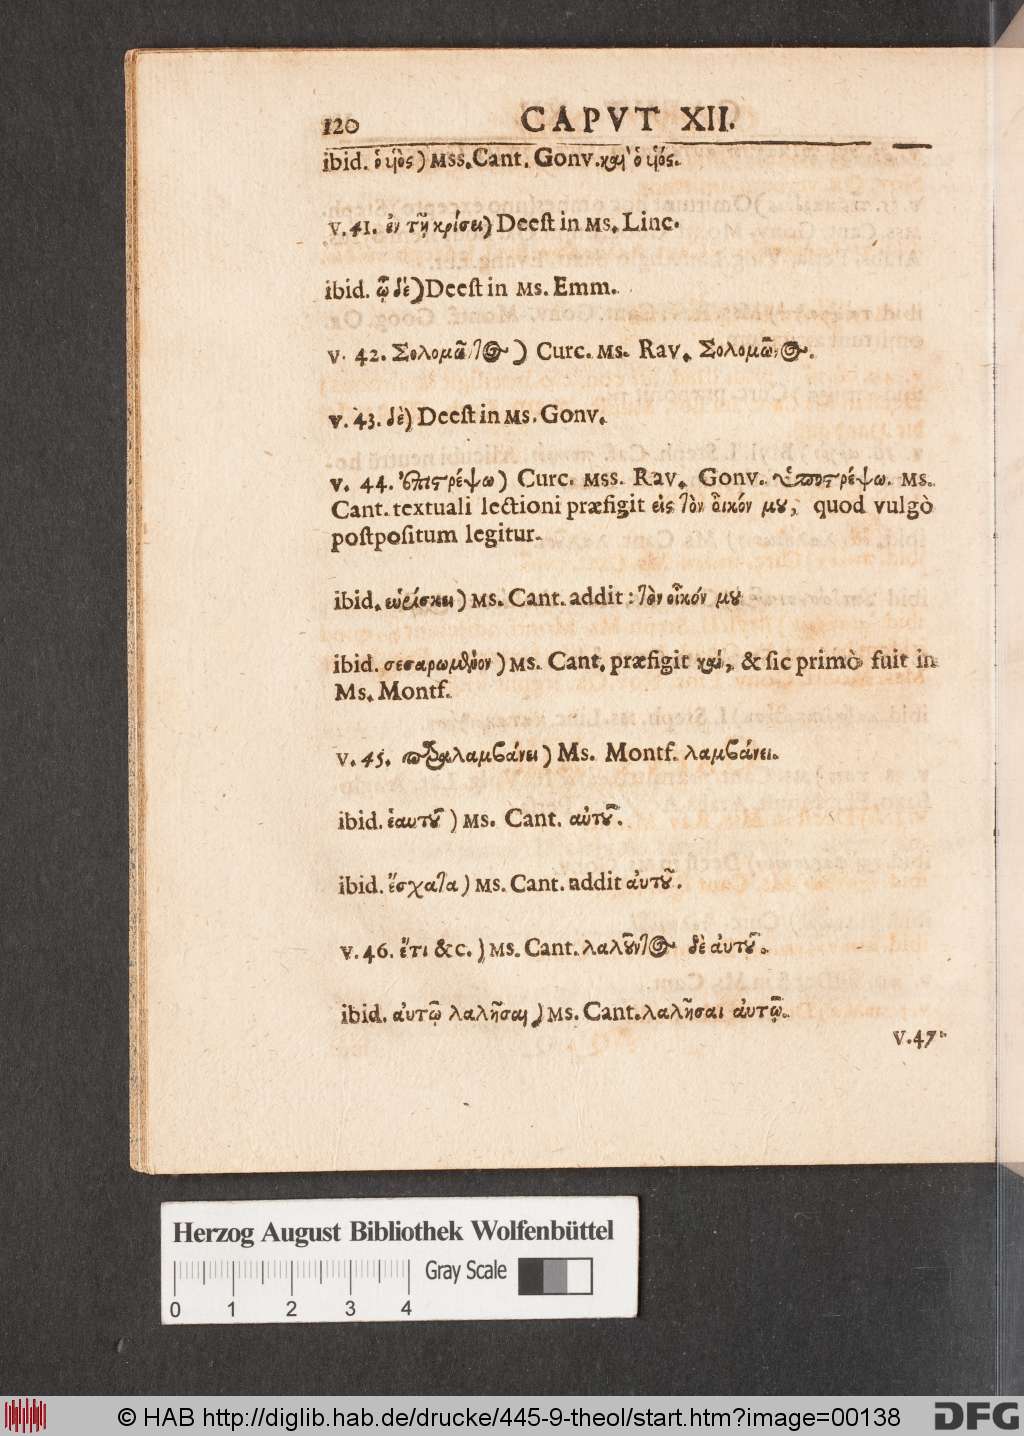 120 CAPVT XII.
ibid. ὁ υἱὸς) Mss. Cant. Gonv. καὶ ὁ υἱός.
v. 41. ἐν τῇ κρίσει) Deest in Ms. Linc.
ibid. ᾧ δὲ) Deest in Ms. Emm.
v. 42. Σολομῶντος) Curc. Ms. Rav. Σολομῶνος.
v. 43. δὲ) Deest in Ms. Gonv.
v. 44. ἐπιστρέψω) Curc. Mss. Rav. Gonv. ὑποστρέψω. Ms.
Cant. textuali lectioni præfigit εἰς τὸν οἶκόν μου, quod vulgò
postpositum legitur.
ibid. εὑρίσκει) Ms. Cant. addit: τὸν οἶκόν μου
ibid. σεσαρωμένον) Ms. Cant. præfigit καὶ, & sic primò fuit in
Ms. Montf.
v. 45. παραλαμβάνει) Ms. Montf. λαμβάνει.
ibid. ἑαυτοῦ) Ms. Cant. αὐτοῦ.
ibid. ἔσχατα) Ms. Cant. addit αὐτοῦ.
v. 46. ἔτι &c.) Ms. Cant. λαλοῦντος δὲ αὐτοῦ.
ibid. αὐτῷ λαλῆσαι) Ms. Cant. λαλῆσαι αὐτῷ.
V. 47
Herzog August Bibliothek Wolfenbüttel
Gray Scale
0 1 2 3 4
© HAB http://diglib.hab.de/drucke/445-9-theol/start.htm?image=00138 DFG